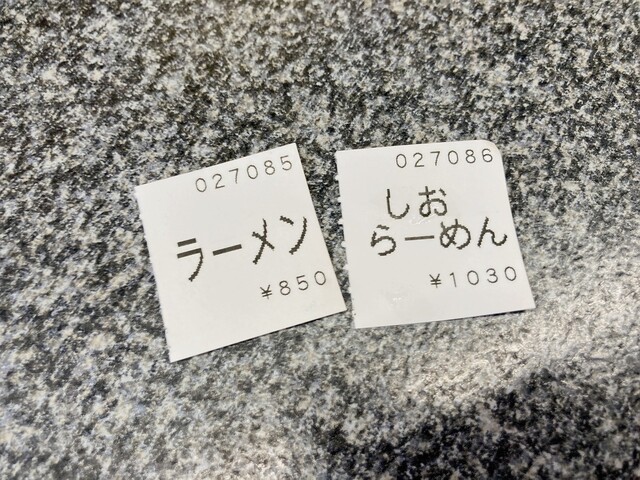 027085
ラーメン
¥850
027086
しお
らーめん
¥1030